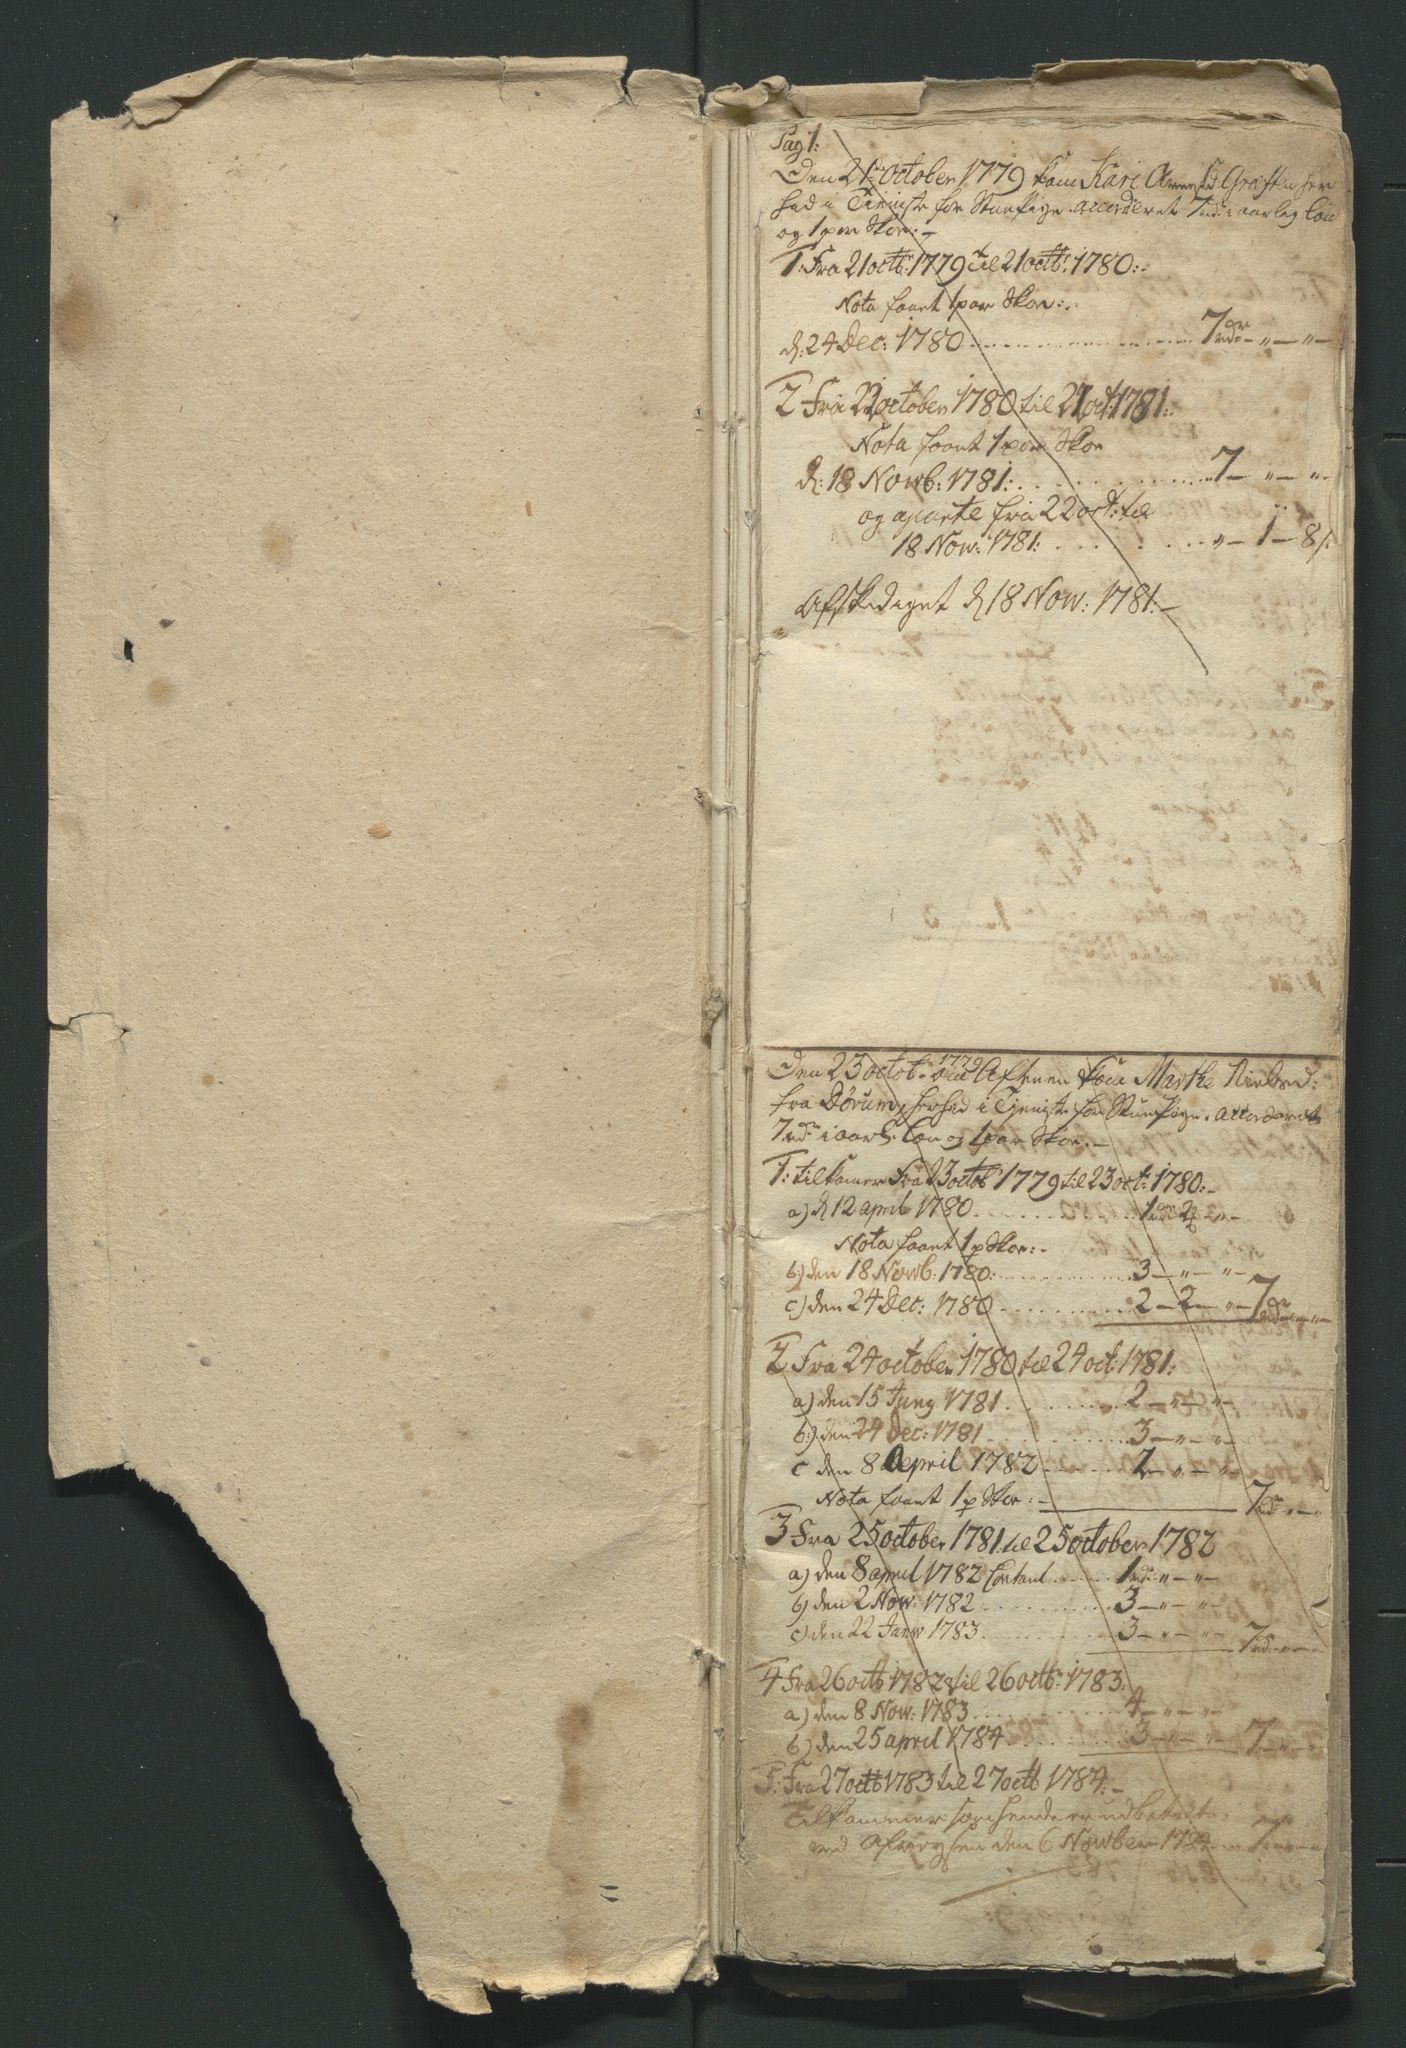 Pag 1:
Den 21: October 1779 kom Kari Græften her
hed i Tieniste for Stuepige. accorderet 7 rd: i aarlig løn
og 1 par Skoe:-
1: Fra 21 octb: 1779 til 21 octb: 1780:-
Nota faaet 1 par Skoe:.
d: 24 Dec: 1780 ........ 7 rdr - " - " -
2 Fra 22 october 1780 til 21 oct 1781:
Nota faaet 1 par Skoe
d: 18 Nowb: 1781: ........ 7 - " - " -
og aparte fra 22 oct: til
18 Now: 1781: ........ " - 1 - 8 s:
Afskediget d 18 Now: 1781:-
Den 23 octob: 1779 om Aftenen kom Marthe Nielsd:
fra Dørum, herhed i Tjeniste for Stuepige. accorderet
7 rdr i aarl: Løn og 1 par Skoe:-
1: tilkomer Fra 23 octob 1779 til 23 oct: 1780:-
a) d 12 april 1780 ........ 1 rdr 2 - " -
Nota faaet 1 p Skoe:-
b) den 18 Nowb: 1780: ........ 3 - " - " -
c) den 24 Dec: 1780 ........ 2 - 2 - " - 7 rdr - " - " -
2 Fra 24 october 1780 til 24 oct: 1781:
a) den 15 Juny 1781 ........ 2 - " - " -
b:) den 24 Dec: 1781 ........ 3 - " - " -
c den 8 April 1782 ........ 2 - " - " -
Nota faaet 1 p Skoe:- 7 rdr - " - "
3 Fra 25 october 1781: til 25 october 1782
a) den 8 april 1782 Contant ..... 1 rd: " - " -
b) den 2 Now: 1782 ........ 3 - " - " -
c) den 22 Janw 1783 ........ 3 - " - " - 7 rd: - " -
4 Fra 26 octb 1782 til 26 octb: 1783:
a) den 8 Now: 1783 ........ 4 - " - " -
b) den 25 april 1784 ........ 3 - " - " - 7 - " -
5: Fra 27 octb 1783 til 27 octb 1784:-
Tilkommer som hende er udbetalt
ved Afreysen den 6 Nowber 1784 ... 7 - " - " -